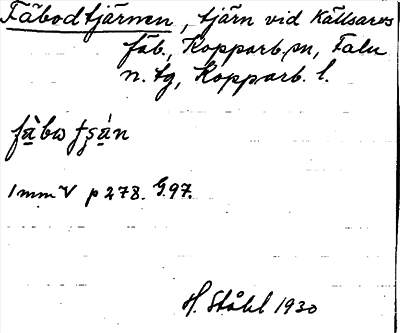 Fäbodtjärnen, tjärn vid Källsares
fäb., Kopparb. sn, Falu
n. tg, Kopparb. l.
fàbω tʂán
1 mm V p 278. G.97.
H. Ståhl 1930